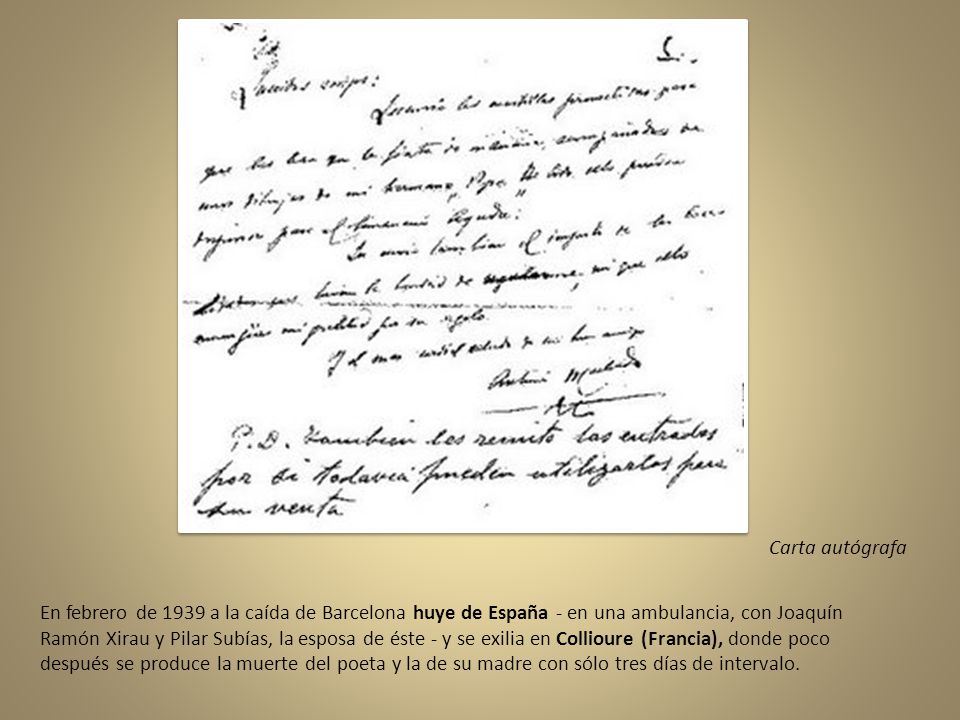 Queridos amigos:
Les envío las cuartillas prometidas para
que las lean en la fiesta de , acompañadas de
unos dibujos de mi hermano "Pepe". De todo ello pueden
disponer para el Ayuda:
Les envío también el importe de las
tuvieron la bondad de , sin que ello
mi gratitud por su regalo.
Y el mas cordial saludo de su buen amigo
Antonio Machado
P.D. También les remito las entradas
por si todavía pueden utilizarlas para
su venta
Carta autógrafa
En febrero de 1939 a la caída de Barcelona huye de España - en una ambulancia, con Joaquín
Ramón Xirau y Pilar Subías, la esposa de éste - y se exilia en Collioure (Francia), donde poco
después se produce la muerte del poeta y la de su madre con sólo tres días de intervalo.